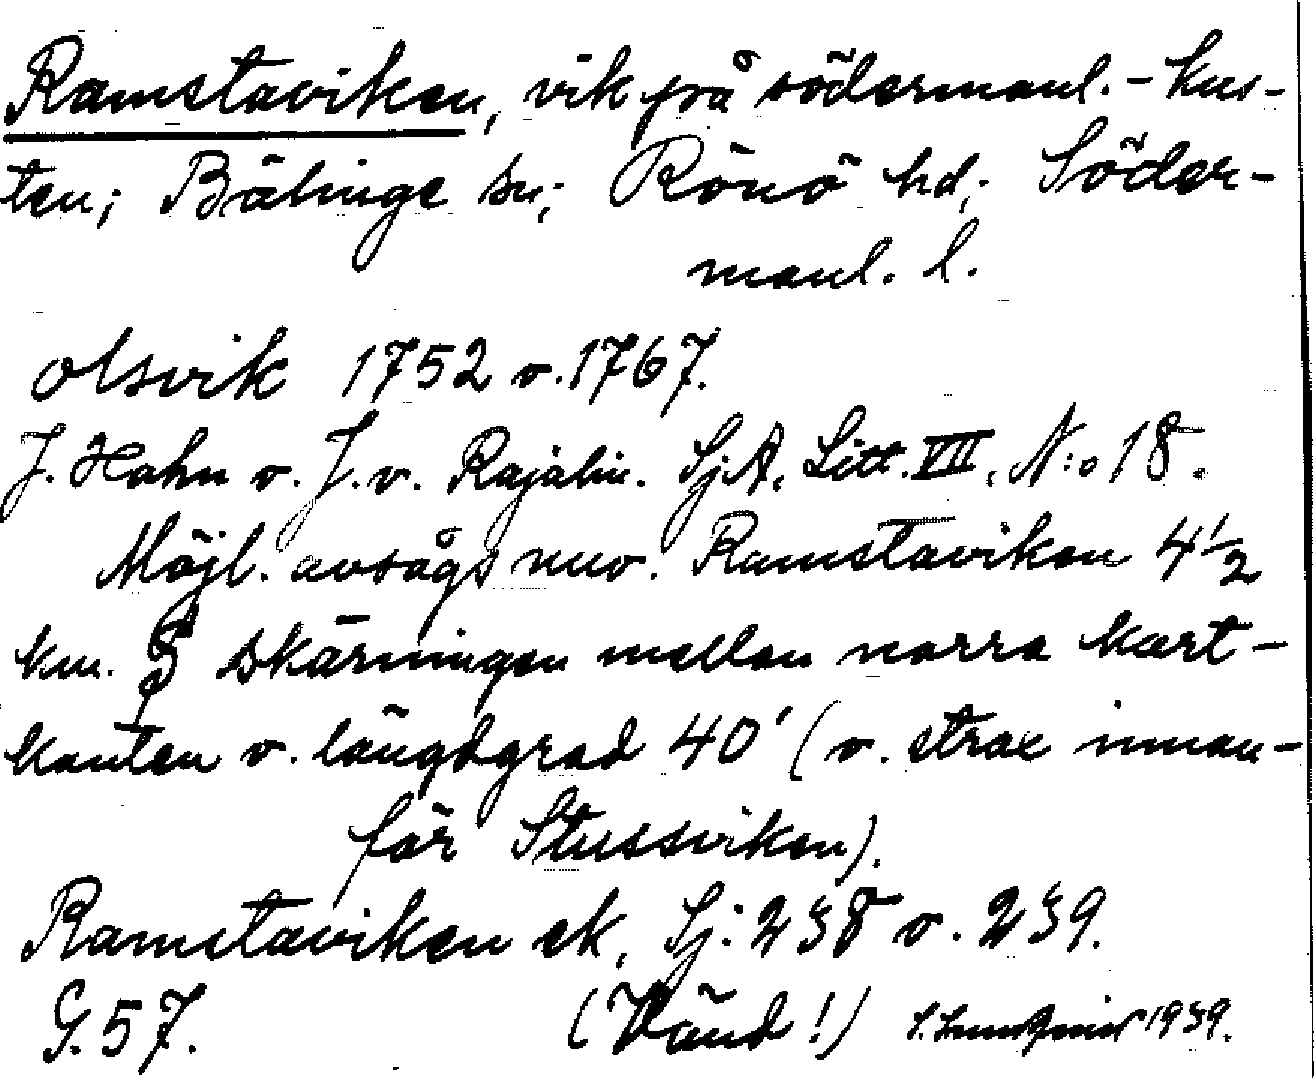 Ramstaviken, vik på södermanl. - kus-
ten; Bälinge sn; Rönö hd; Söder-
manl. l.
Olsvik 1752 o. 1767.
J. Hahn o. J. v. Rajalin. Sj.A. Litt. VII, N:o 18.
Möjl. avsågs nuv. Ramstaviken 4 1/2
km. S skärningen mellan norra kart-
kanten o. längdgrad 40' (o. strax innan-
för Stussviken).
Ramstaviken ek. Sj: 238 o. 239.
G. 57. (Vänd!) 1939.